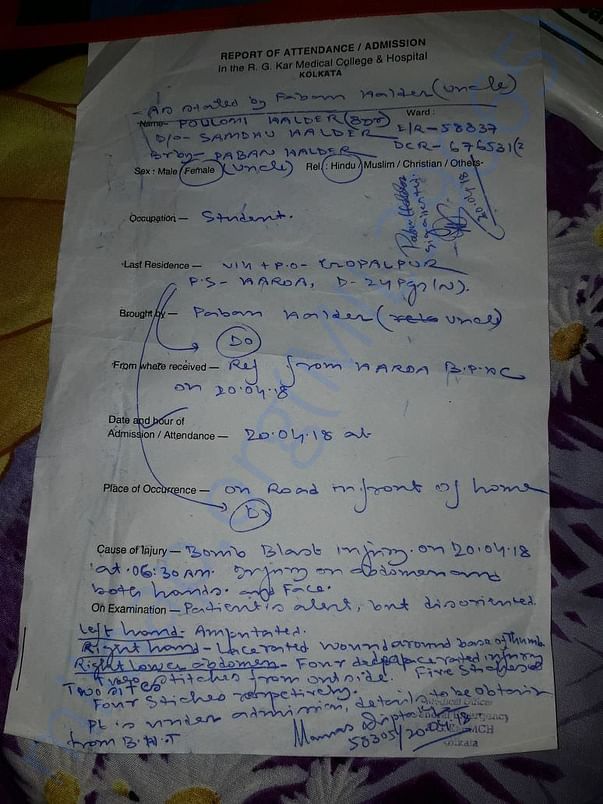 REPORT OF ATTENDANCE / ADMISSION
In the R. G. Kar Medical College & Hospital
KOLKATA
- As stated by Paban Halder (uncle)
Name - POULOMI HALDER Ward :
D/o - SAMBHU HALDER EIR - 58837
Br by - PABAN HALDER DCR - 676531
Sex : Male / Female (uncle) Rel. : Hindu / Muslim / Christian / Others-
20.04.18
Occupation — Student.
Last Residence — Vill + P.O - GOPALPUR
P.S - HAROA, D - 24 Pgs (N).
Brought by — Paban Halder ( uncle)
DO
From where received — Ref from HAROA B.P.H.C
on 20.04.18
Date and hour of
Admission / Attendance — 20.04.18 at
Place of Occurrence — on Road in front of home
Cause of Injury — Bomb Blast injury on 20.04.18
at 06:30 AM. Injury on abdomen and
both hands and Face.
On Examination — Patient is alert, but disoriented.
Left hand - Amputated.
Right hand - Lacerated wound around base of thumb
Right Lower abdomen - Four deep lacerated injury
Two sites stitches from outside. Five stitches &
Four stiches respectively.
Pt is under admission, details to be obtain
from B.H.T